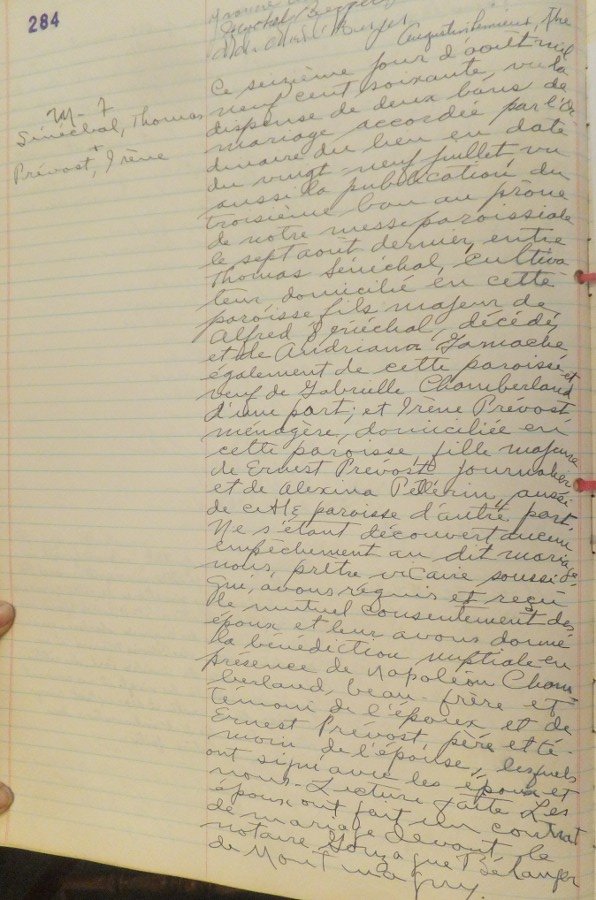 284
Augustin Lemieux, Ptre
M-7
Sénéchal, Thomas
+
Prévost, Irène
Ce seizième jour d'août mil
neuf cent soixante, vu la
dispense de deux bans de
mariage accordée par l'Or
dinaire du lieu en date
du vingt-neuf juillet vu
aussi la publication du
troisième ban au prône
de notre messe paroissiale
le sept août dernier, entre
Thomas Sénéchal, cultiva
teur domicilié en cette
paroisse fils majeur de
Alfred Sénéchal, décédé,
et de Andriana Gamache
également de cette paroisse et
veuf de Gabrielle Chamberland
d'une part; et Irène Prévost
ménagère, domiciliée en
cette paroisse, fille majeure
de Ernest Prévost journalier
et de Alexina Pellerin, aussi
de cette paroisse d'autre part.
Ne s'étant découvert aucun
empêchement au dit maria
nous, prêtre vicaire soussi
gné, avons requis et reçu
le mutuel consentement des
époux et leur avons donné
la bénédiction nuptiale en
présence de Napoléon Cham
berland, beau-frère et
témoin de l'époux et de
Ernest Prévost, père et té-
moin de l'épouse, lesquels
ont signé avec les époux et
nous. Lecture faite Les
époux ont fait un contrat
de mariage devant le
notaire Gonzague Bélanger
de Montmagny.